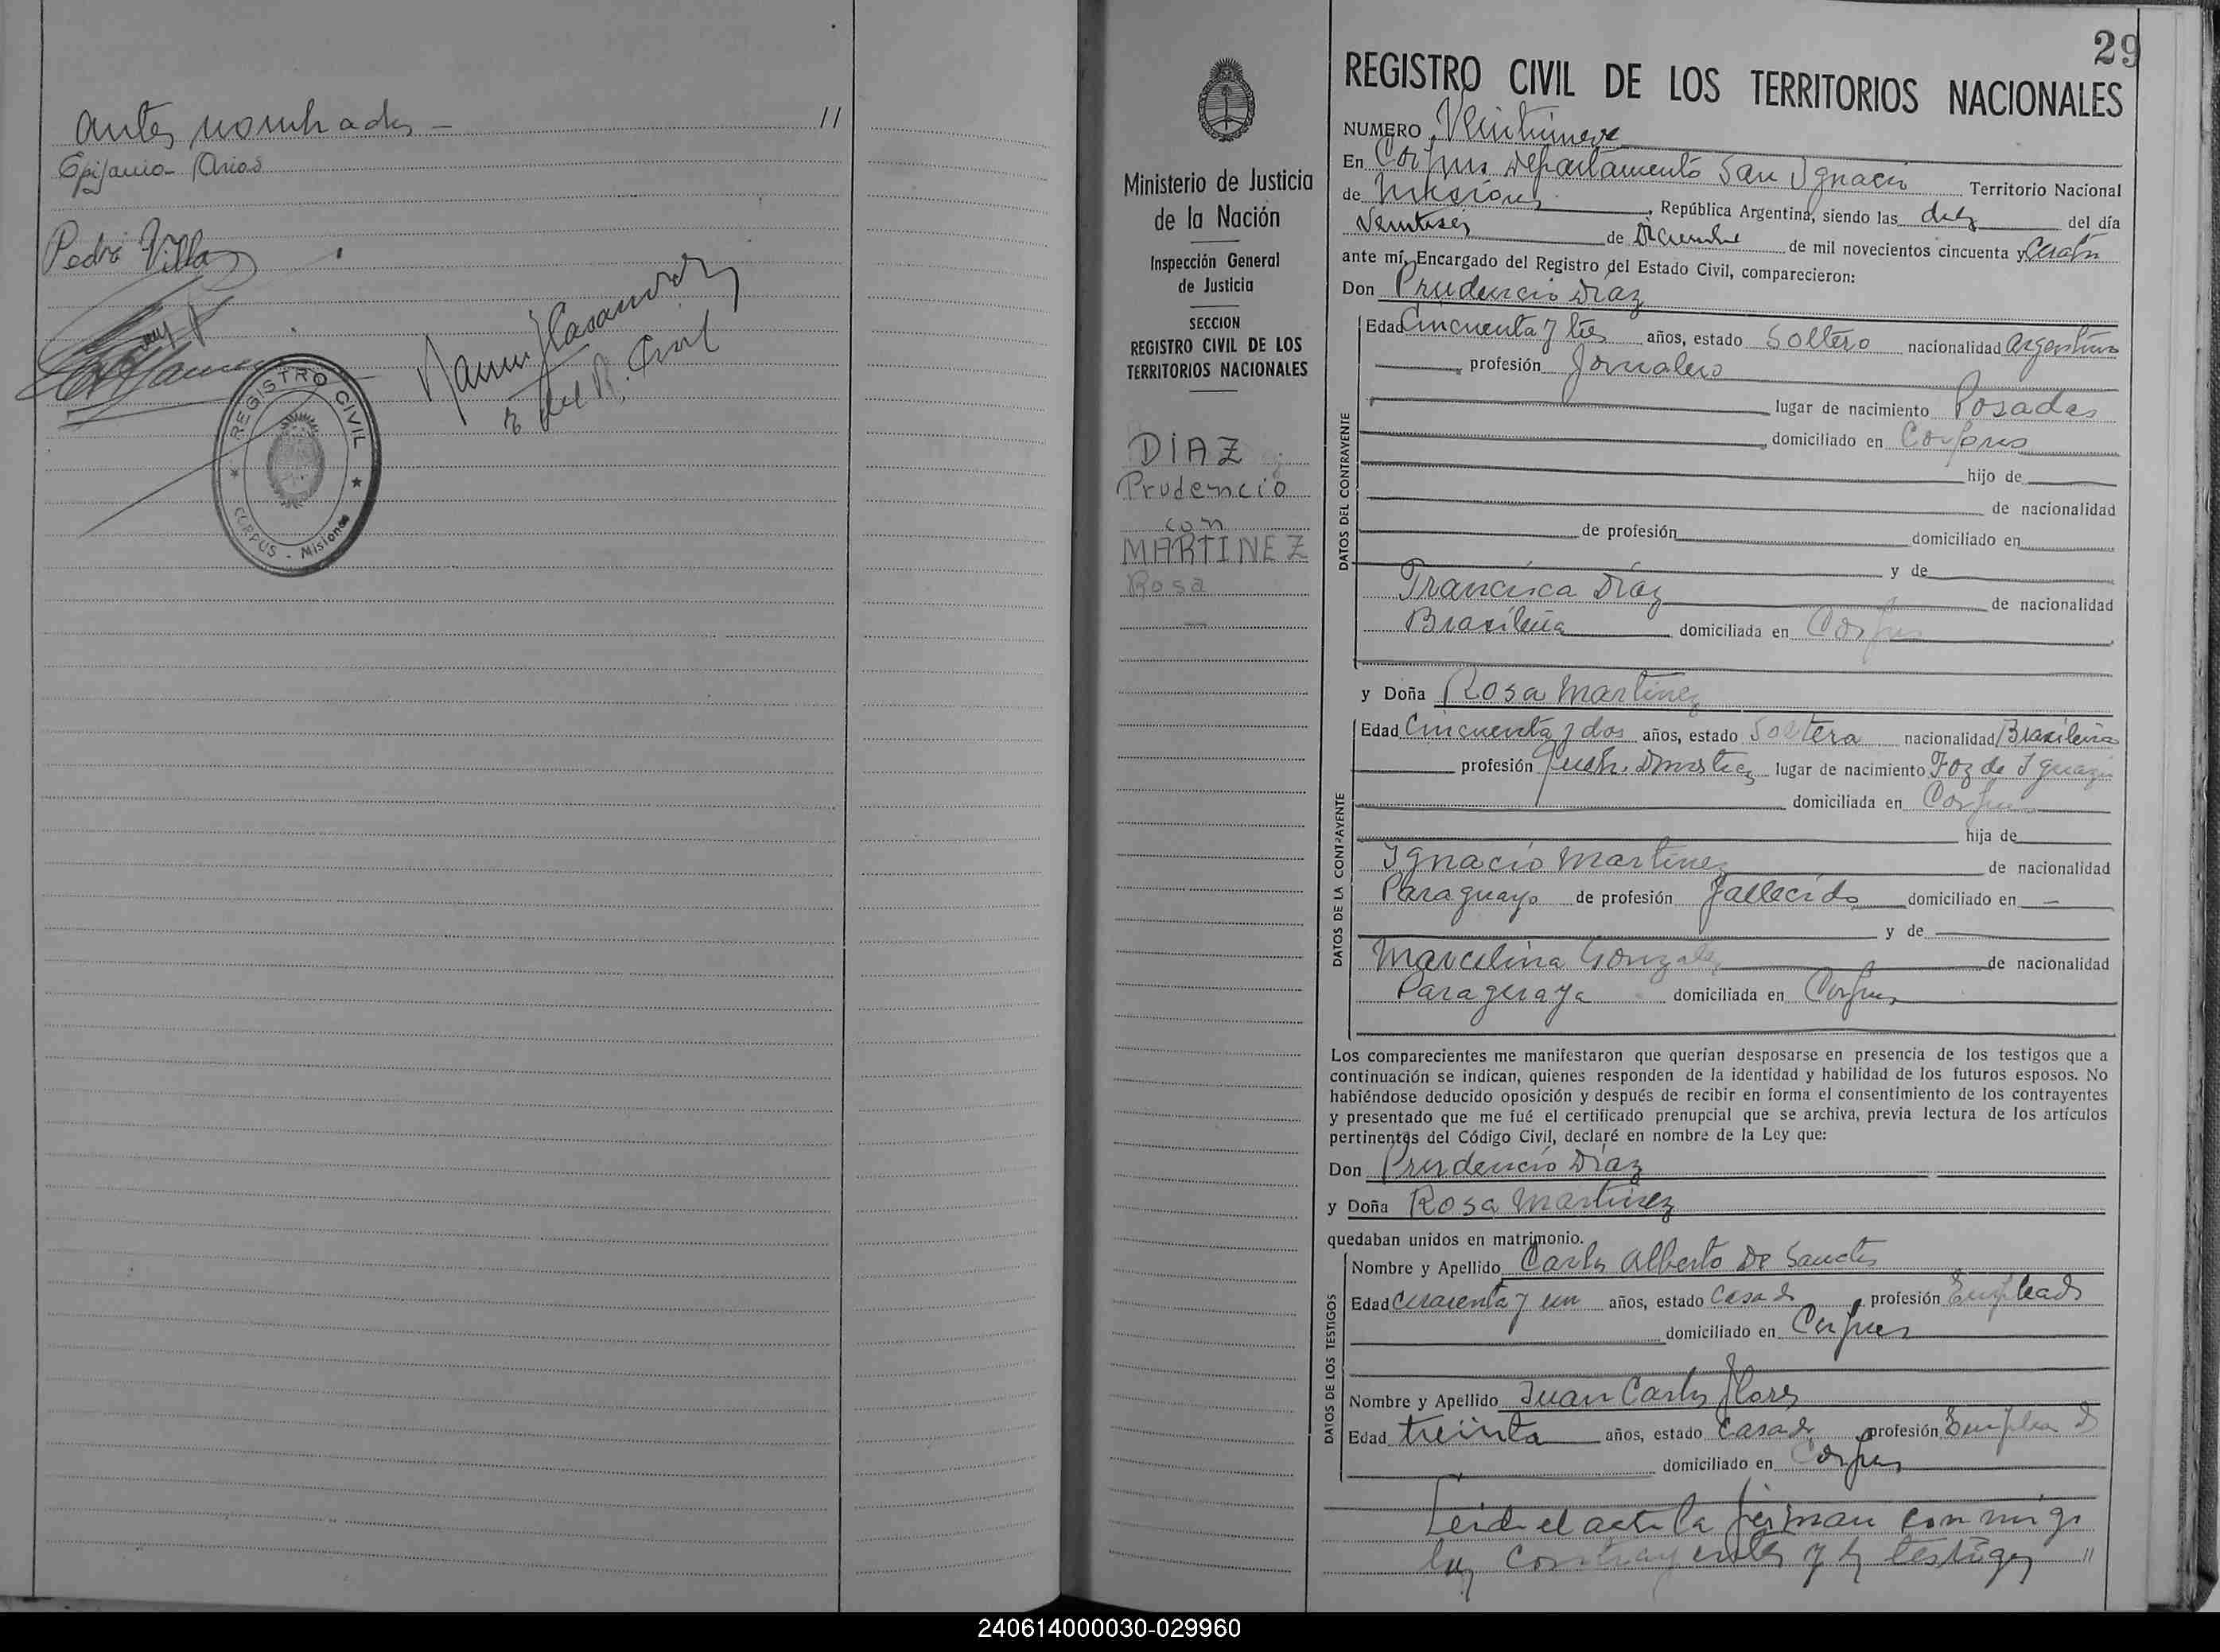 antes nombrados - //
Epifania Arias
Pedro Villa
E. del R. Civil
REGISTRO CIVIL
CORPUS - Misiones
29
Ministerio de Justicia
de la Nación
Inspección General
de Justicia
SECCION
REGISTRO CIVIL DE LOS
TERRITORIOS NACIONALES
DIAZ
Prudencio
con
MARTINEZ
Rosa
REGISTRO CIVIL DE LOS TERRITORIOS NACIONALES
NUMERO Veintinueve
En Corpus Departamento San Ignacio Territorio Nacional
de Misiones, República Argentina, siendo las diez del día
veintiseis de Diciembre de mil novecientos cincuenta y cuatro
ante mí, Encargado del Registro del Estado Civil, comparecieron:
Don Prudencio Diaz
DATOS DEL CONTRAYENTE
Edad Cincuenta y tres años, estado Soltero nacionalidad argentino
profesión Jornalero
lugar de nacimiento Posadas
domiciliado en Corpus
hijo de
de nacionalidad
de profesión domiciliado en
y de
Francisca Diaz de nacionalidad
Brasileña domiciliada en Corpus
y Doña Rosa Martinez
DATOS DE LA CONTRAYENTE
Edad Cincuenta y dos años, estado Soltera nacionalidad Brasileña
profesión Queh. Domesticos lugar de nacimiento Foz de Iguazu
domiciliada en Corpus
hija de
Ignacio Martinez de nacionalidad
Paraguayo de profesión fallecido domiciliado en -
y de
Marcelina Gonzalez de nacionalidad
Paraguaya domiciliada en Corpus
Los comparecientes me manifestaron que querían desposarse en presencia de los testigos que a
continuación se indican, quienes responden de la identidad y habilidad de los futuros esposos. No
habiéndose deducido oposición y después de recibir en forma el consentimiento de los contrayentes
y presentado que me fué el certificado prenupcial que se archiva, previa lectura de los artículos
pertinentes del Código Civil, declaré en nombre de la Ley que:
Don Prudencio Diaz
y Doña Rosa Martinez
quedaban unidos en matrimonio.
DATOS DE LOS TESTIGOS
Nombre y Apellido Carlos Alberto De Sanctis
Edad cuarenta y un años, estado Casado profesión Empleado
domiciliado en Corpus
Nombre y Apellido Juan Carlos Flores
Edad treinta años, estado Casado profesión Empleado
domiciliado en Corpus
Leida el acta la firman conmigo
los contrayentes y los testigos //
240614000030-029960